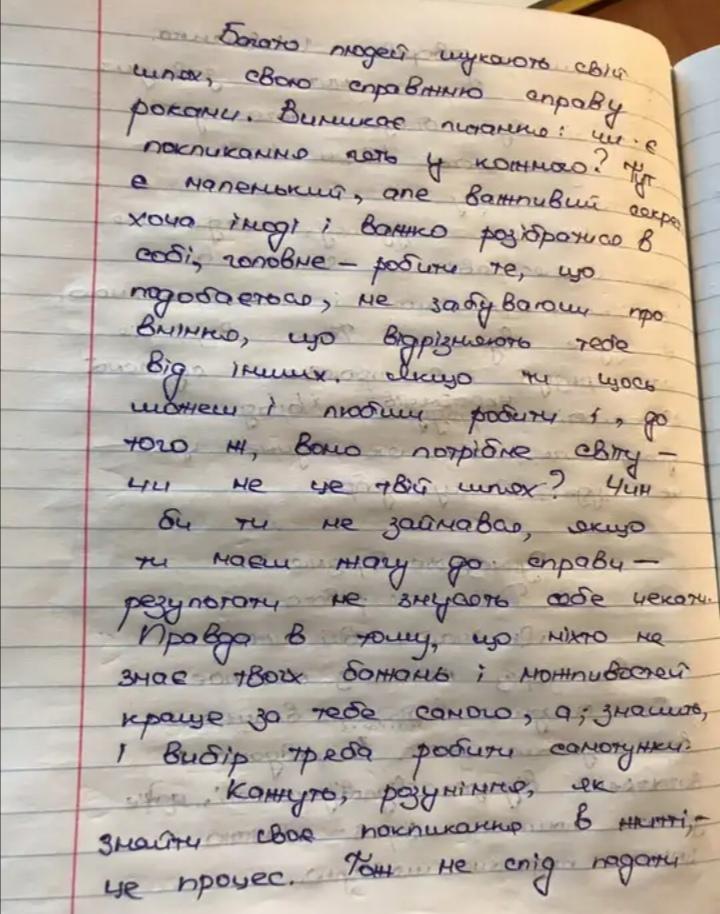 Багато людей шукають свій
шлях, свою справжню справу
роками. Виникає питання: чи є
покликання геть у кожного? Тут
є маленький, але важливий секрет
хоча іноді і важко розібратися в
собі, головне – робити те, що
подобається, не забуваючи про
вміння, що відрізняють тебе
від інших. Якщо ти щось
можеш і любиш робити і, до
того ж, воно потрібне світу –
чи не це твій шлях? Чим
би ти не займався, якщо
ти маєш жагу до справи –
результати не змусять себе чекати.
Правда в тому, що ніхто не
знає твоїх бажань і можливостей
краще за тебе самого, а, значить,
і вибір треба робити самотужки.
Кажуть, розуміння, як
знайти своє покликання в житті, –
це процес. Тож не слід падати